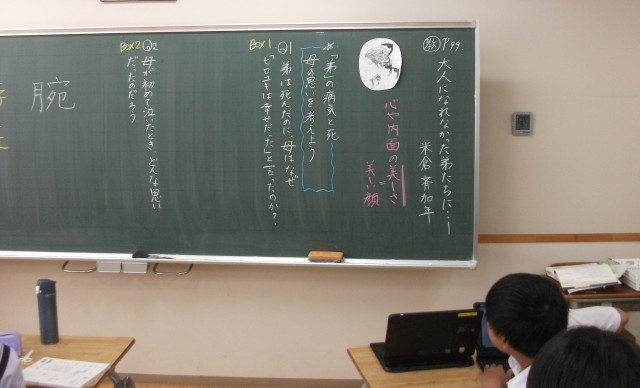 教 P99
大人になれなかった弟たちに…
米倉 斉加年
心や内面の美しさ
=
美しい顔
☆「弟」の病気と死
母の思いを考えよう
BOX1 Q1 弟は死んだのに、母はなぜ
「ヒロユキは幸せだった」と言ったのか?
BOX2 Q2 母が初めて泣いたとき、どんな思い
だったのだろう
腕